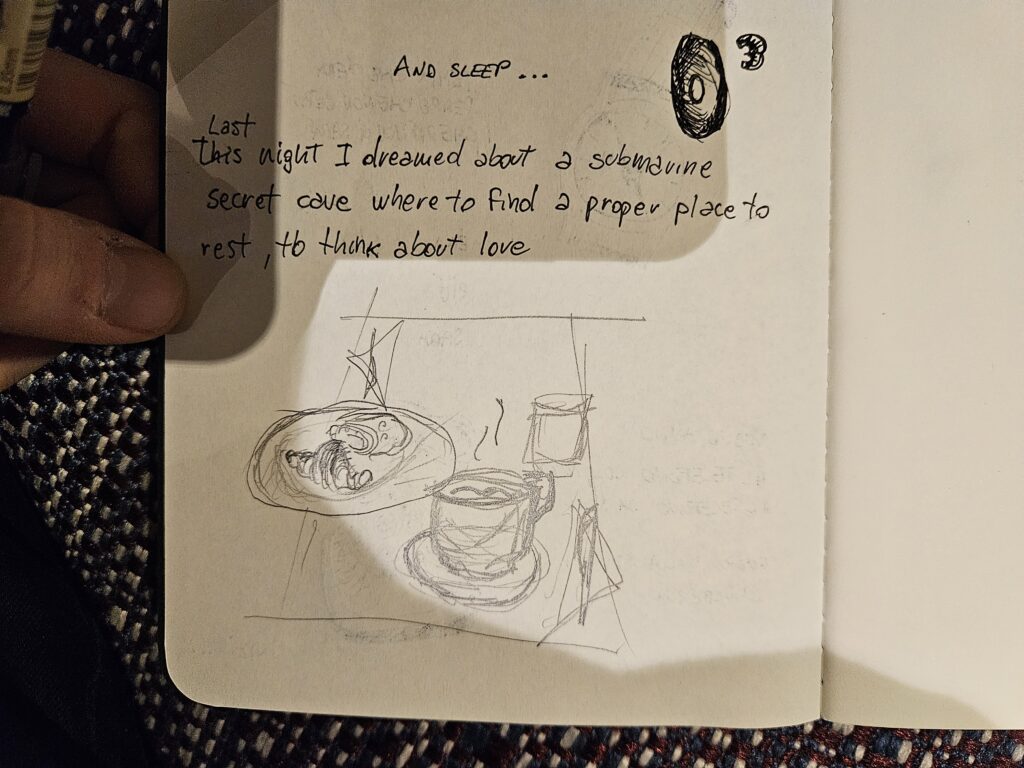 AND SLEEP...
03
Last
this night I dreamed about a submarine
secret cave where to find a proper place to
rest, to think about love